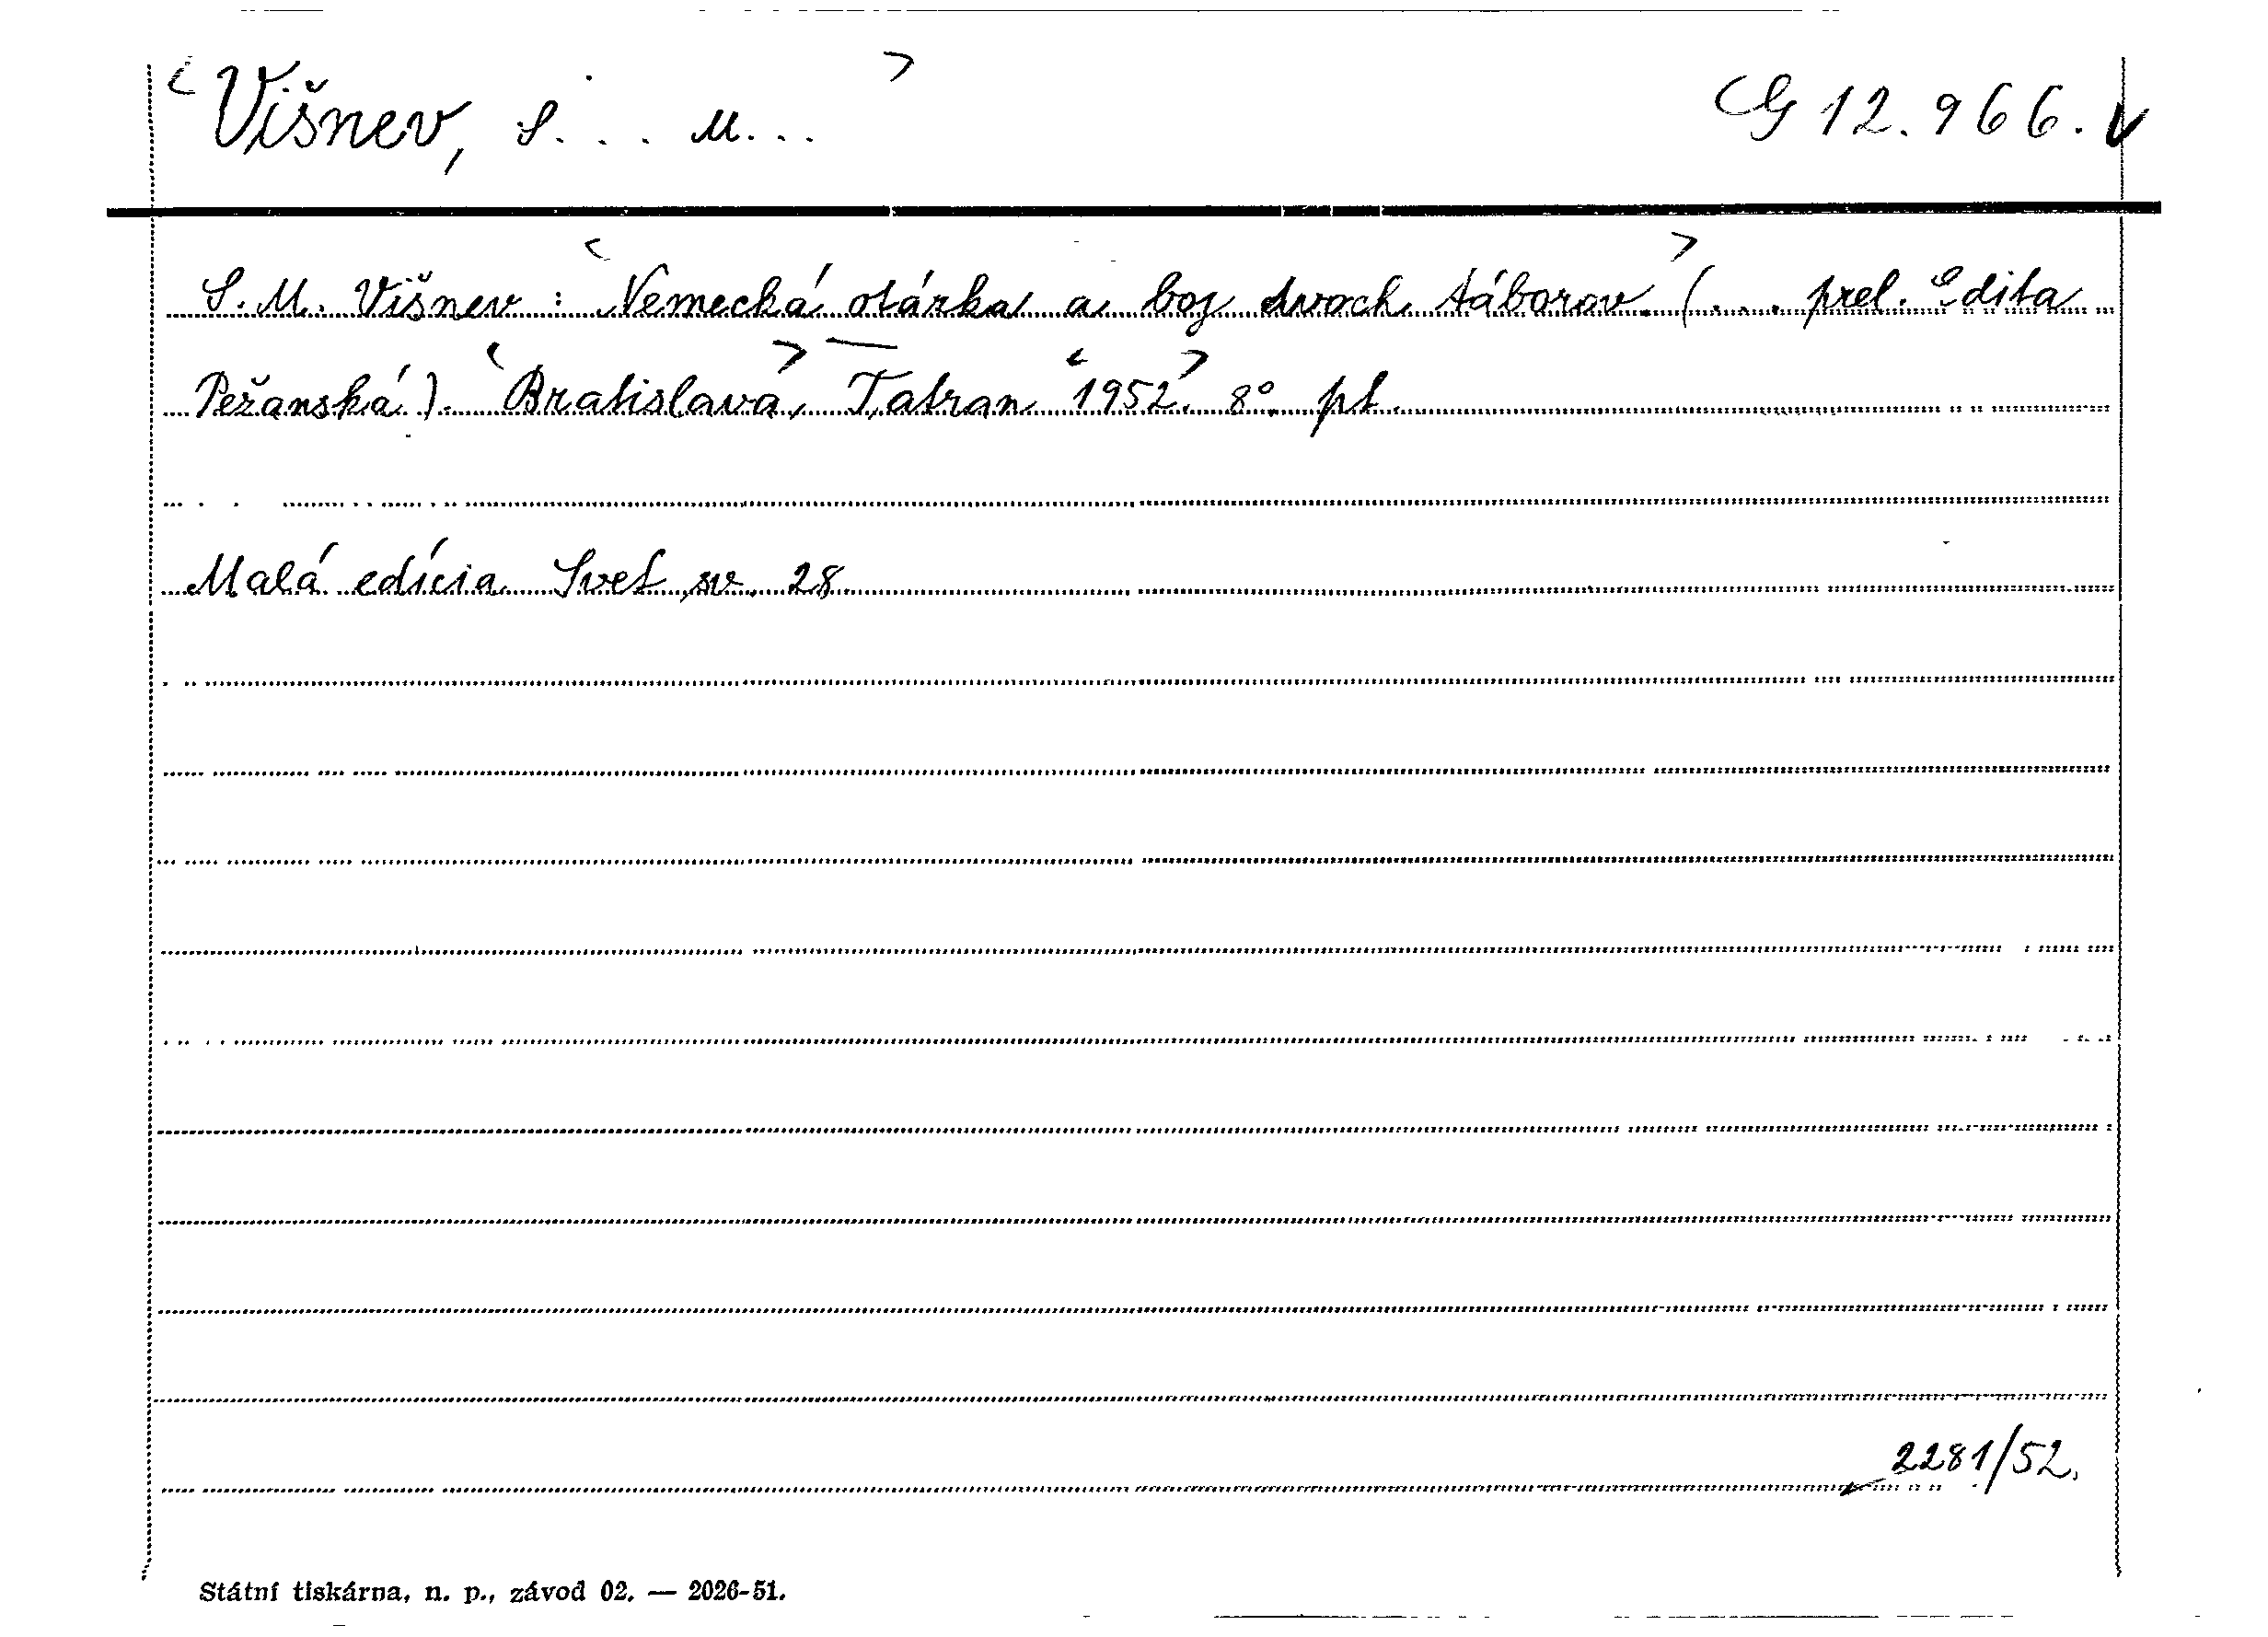 <Višnev, S... M...> G 12.966.
S. M. Višnev: <Nemecká otázka a boj dvoch táborov.> (... prel. Edita
Pežanská). <Bratislava>, Tatran <1952>. 8° pt.
Malá edícia Svet, sv. 28.
2281/52.
Státní tiskárna, n. p., závod 02. — 2026-51.